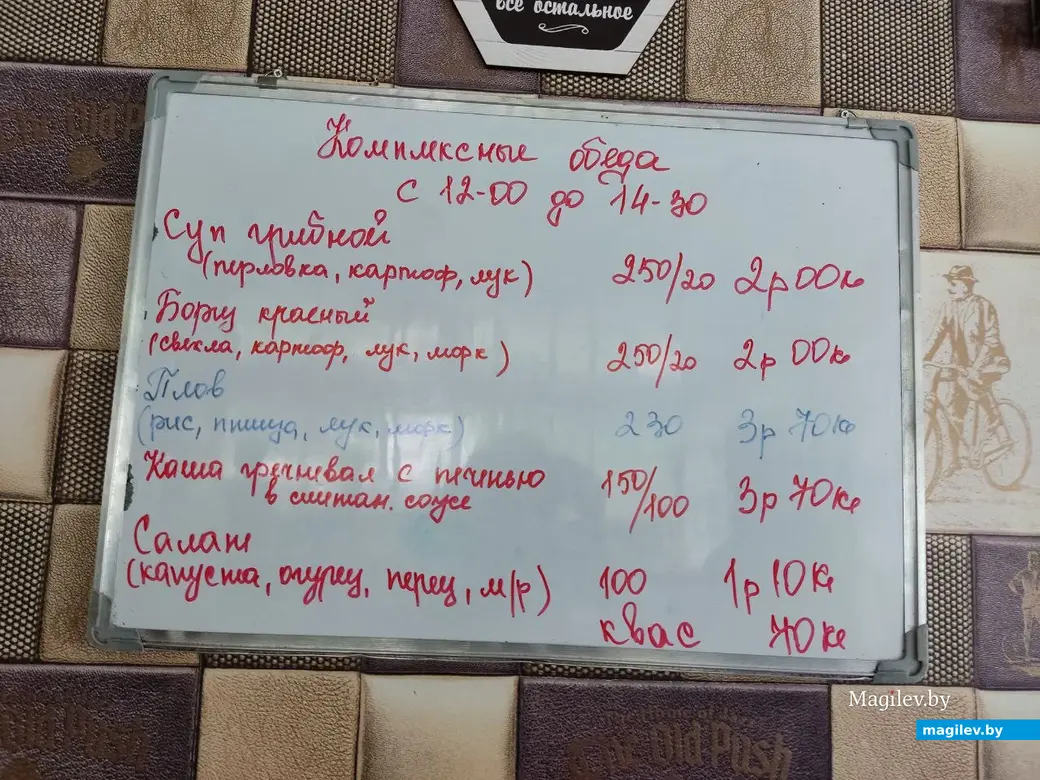 все остальное
Комплексные обеда
с 12-00 до 14-30
Суп грибной
(перловка, картоф, лук) 250/20 2р 00к
Борщ красный
(свекла, картоф, лук, морк) 250/20 2р 00к
Плов
(рис, птица, лук, морк) 230 3р 70к
Каша гречневая с печенью
в сметан. соусе 150/100 3р 70к
Салат
(капуста, огурец, перец, м/р) 100 1р 10к
квас 70к
The Old Push
Magilev.by
magilev.by